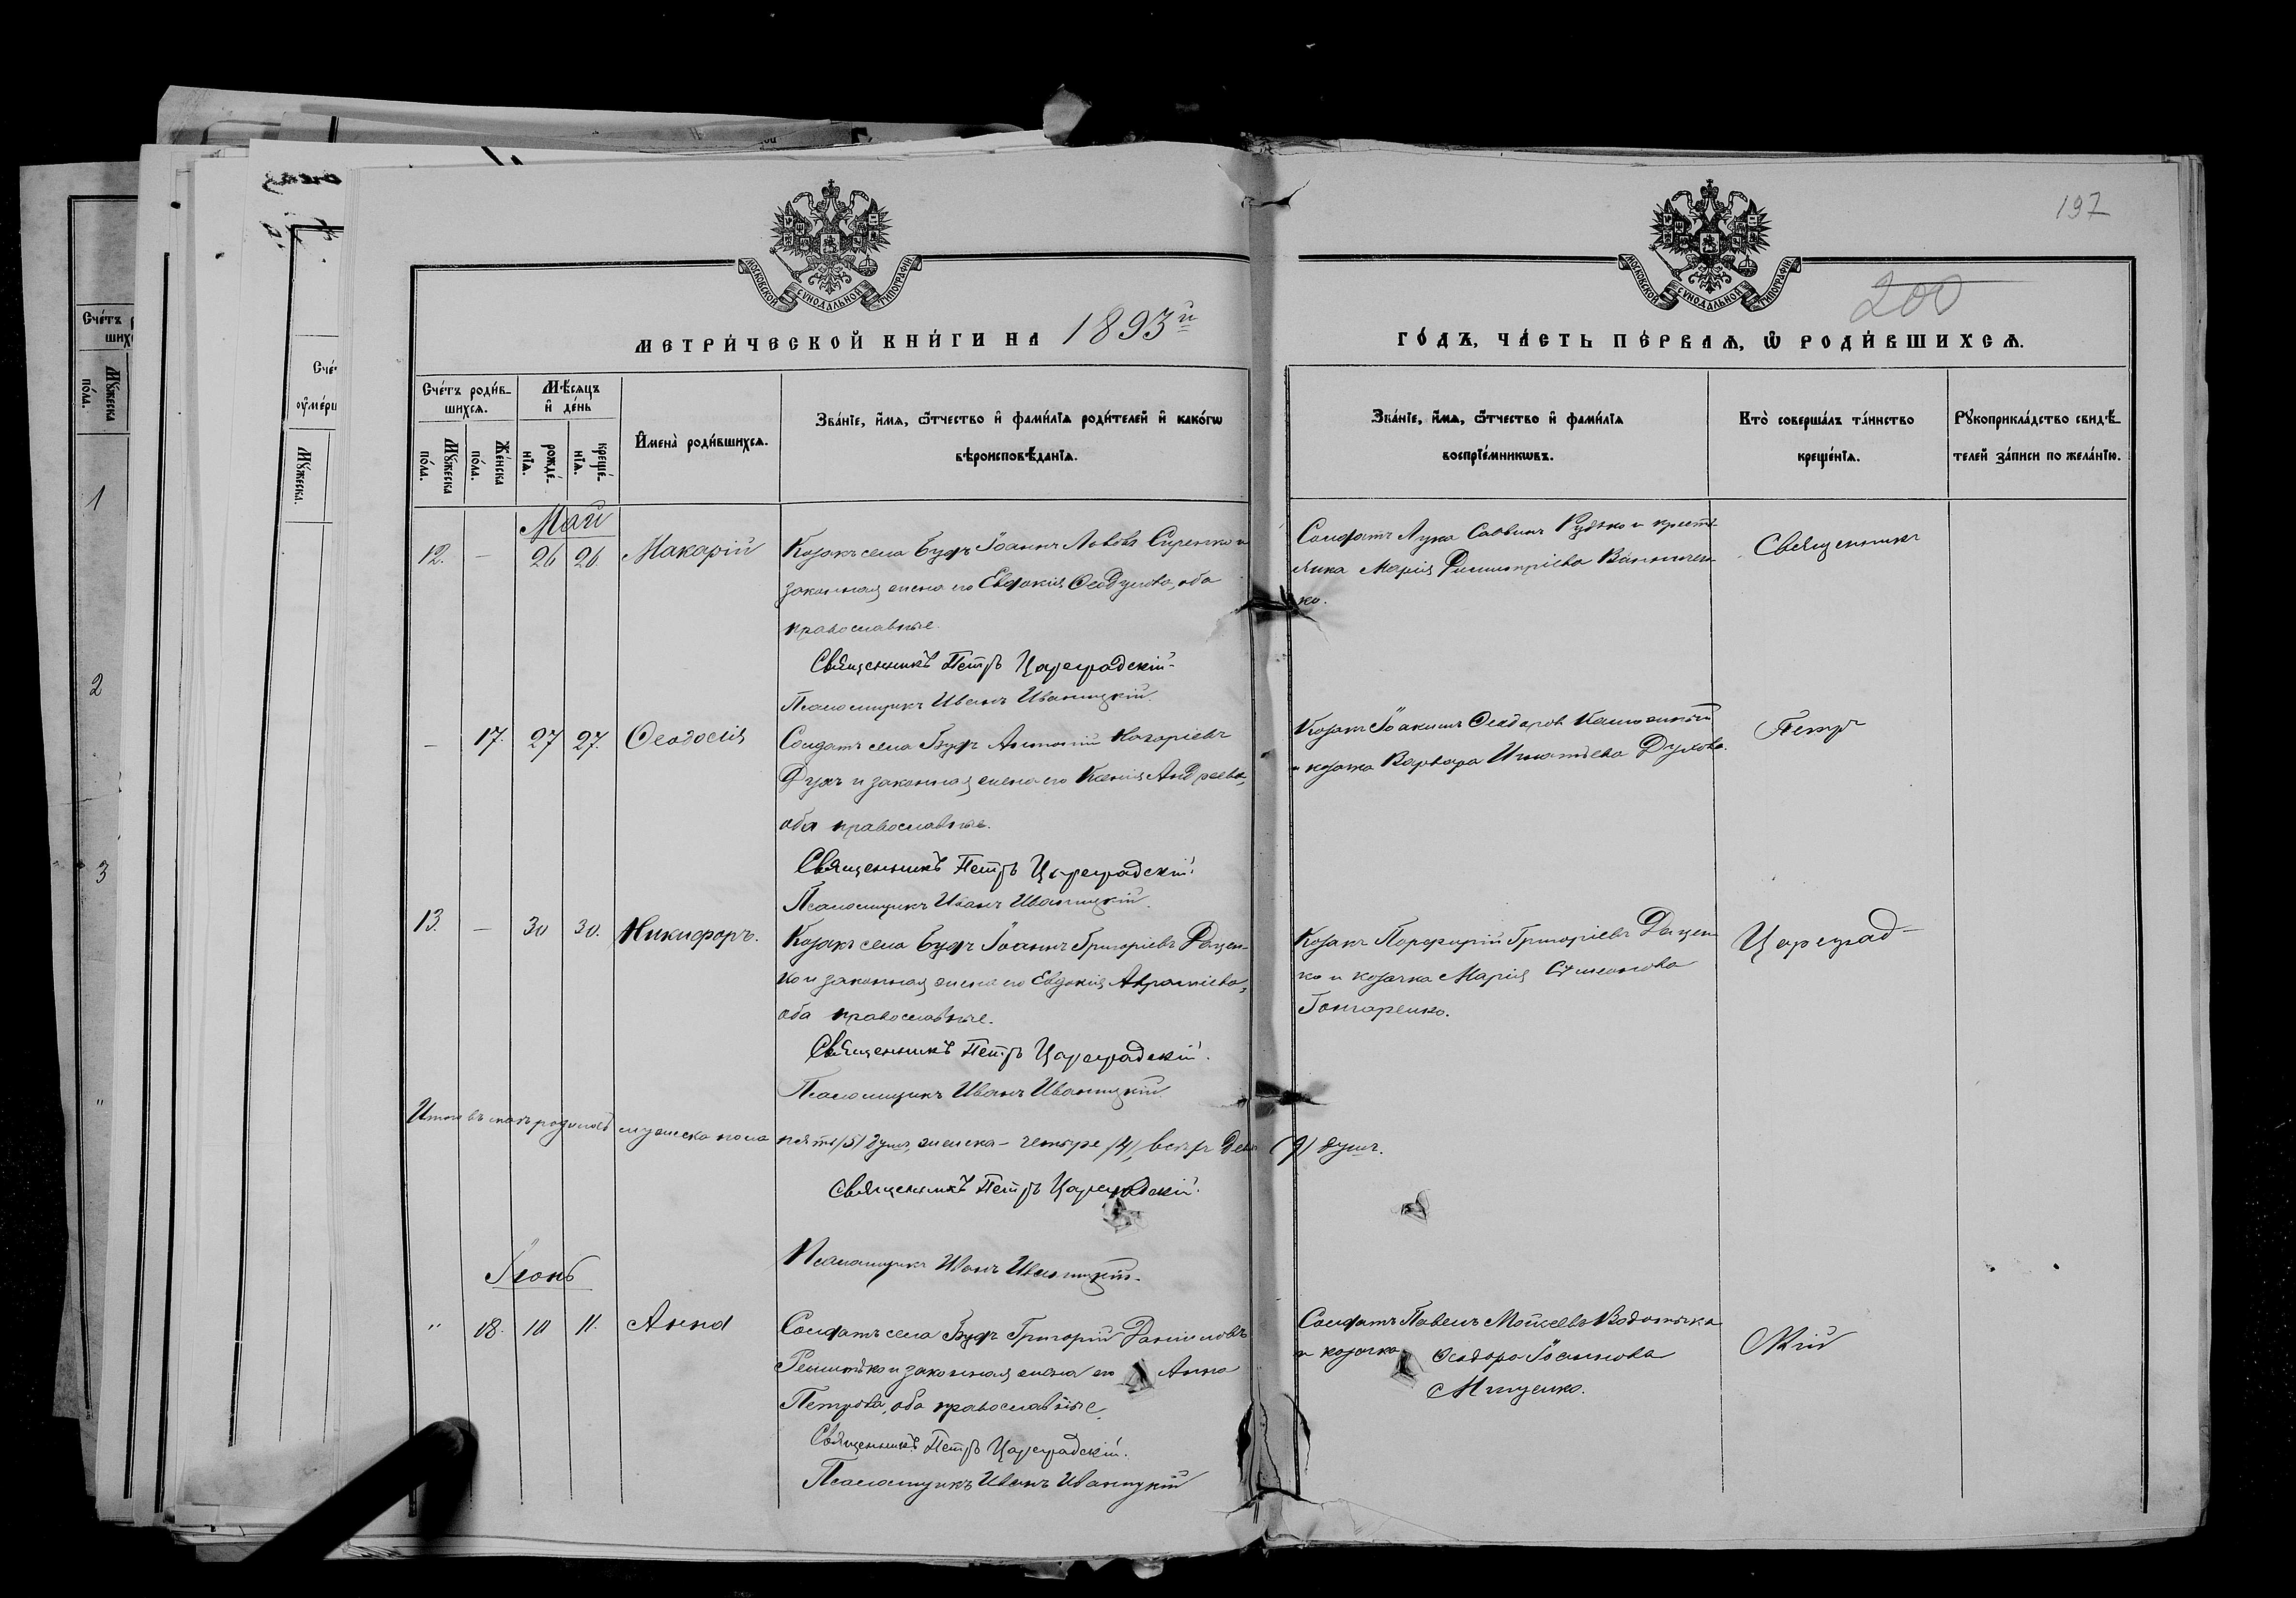 197
200
МОСКОВСКОЙ СУНОДАЛЬНОЙ ТИПОГРАФІИ
МОСКОВСКОЙ СУНОДАЛЬНОЙ ТИПОГРАФІИ
МЕТРИ́ЧЕСКОЙ КНИ́ГИ НА 1893й
ГО́ДЪ, ЧА́СТЬ ПЕ́РВАѦ, Ѡ҆ РОДИ́ВШИХСѦ.
Сче́тъ роди́в-
шихсѧ.
Мѣ́сѧцъ
и҆ де́нь
Мꙋ́жеска
по́ла.
Же́нска
по́ла.
рожде́-
нїѧ.
креще́-
нїѧ.
И҆мена̀ роди́вшихсѧ.
Зва́нїе, и҆́мѧ, ѻ҆́тчество и҆ фами́лїѧ роди́телей и҆ како́гѡ
вѣроисповѣ́данїѧ.
Зва́нїе, и҆́мѧ, ѻ҆́тчество и҆ фами́лїѧ
воспрїе́мникѡвъ.
Кто̀ соверша́лъ та́инство
креще́нїѧ.
Рꙋкоприкла́дство свидѣ́-
телей за́писи по жела́нїю.
Май
12. — 26 26. Макарій
Козакъ села Будъ Іоаннъ Львовъ Сиренко и
законная жена его Евдокія Ѳеодулова, оба
православные.
Священникъ Петръ Цареградскій.
Псаломщикъ Иванъ Иваницкій.
Солдатъ Лука Саввинъ Рудько и крестья-
нка Марія Димитріева
ко.
Священникъ
— 17. 27 27. Ѳеодосія
Солдатъ села Будъ Антоній Назаріевъ
Духъ и законная жена его Ксенія Андреева,
оба православные.
Священникъ Петръ Цареградскій.
Псаломщикъ Иванъ Иваницкій.
Козакъ Іоакимъ Ѳеодоровъ
и козачка Варвара Игнатьева Духова.
Петръ
13. — 30 30. Никифоръ.
Козакъ села Будъ Іоаннъ Григоріевъ Даценко
ко и законная жена его Евдокія Авраміева,
оба православные.
Священникъ Петръ Цареградскій.
Псаломщикъ Иванъ Иваницкій
Козакъ Порфирій Григоріевъ Дацен
ко и козачка Марія Симеонова
Гончаренко.
Цареград-
Итого въ маѣ родилось мужеска пола пять /5/ душ, женска – четыре /4/, всѣхъ девять (9) душъ.
Священникъ Петръ Цареградскій.
Псаломщикъ Иванъ Иваницкій.
Іюнь
" 18. 10 11. Анна
Солдатъ села Будъ Григорій Даніиловъ
Решетько и законная жена его Анна
Петрова, оба православные.
Священникъ Петръ Цареградскій.
Псаломщикъ Иванъ Иваницкій
Солдатъ Павелъ Моисеевъ Водотыка
и козачка Ѳеодора Іоаннова
Мищенко.
скій
Сче́тъ
Мꙋ́жеска
по́ла.
1
2
3
"
Сче́
ᲂу҆ме́рш
Мꙋ́жеска.